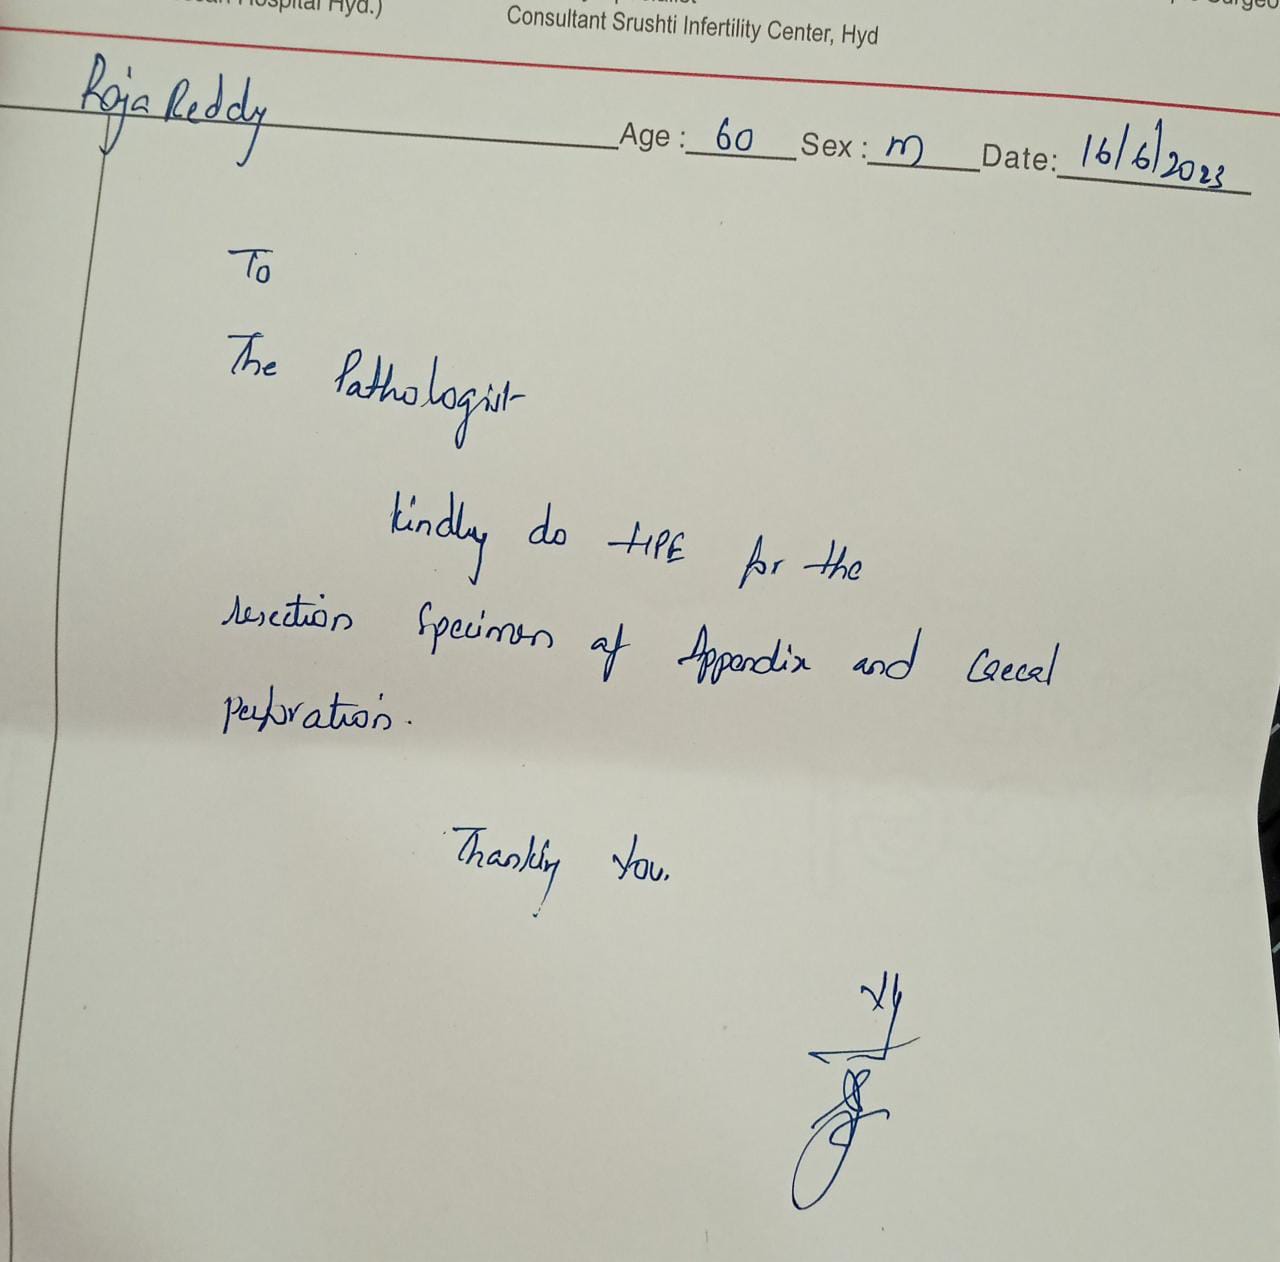 Hospital Hyd.)
Consultant Srushti Infertility Center, Hyd
Roja Reddy Age : 60 Sex : m Date: 16/6/2023
To
The Pathologist
kindly do HPE for the
resection specimen of Appendix and Caecal
perforation.
Thanking You.